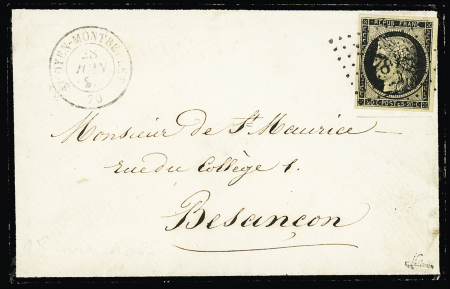 ST OYEN-MONTBELLET
28
JUIN
70
REPUB. FRANC.
20 C. POSTES 20 C.
78
Monsieur de St. Maurice
rue du Collège 1.
Besançon